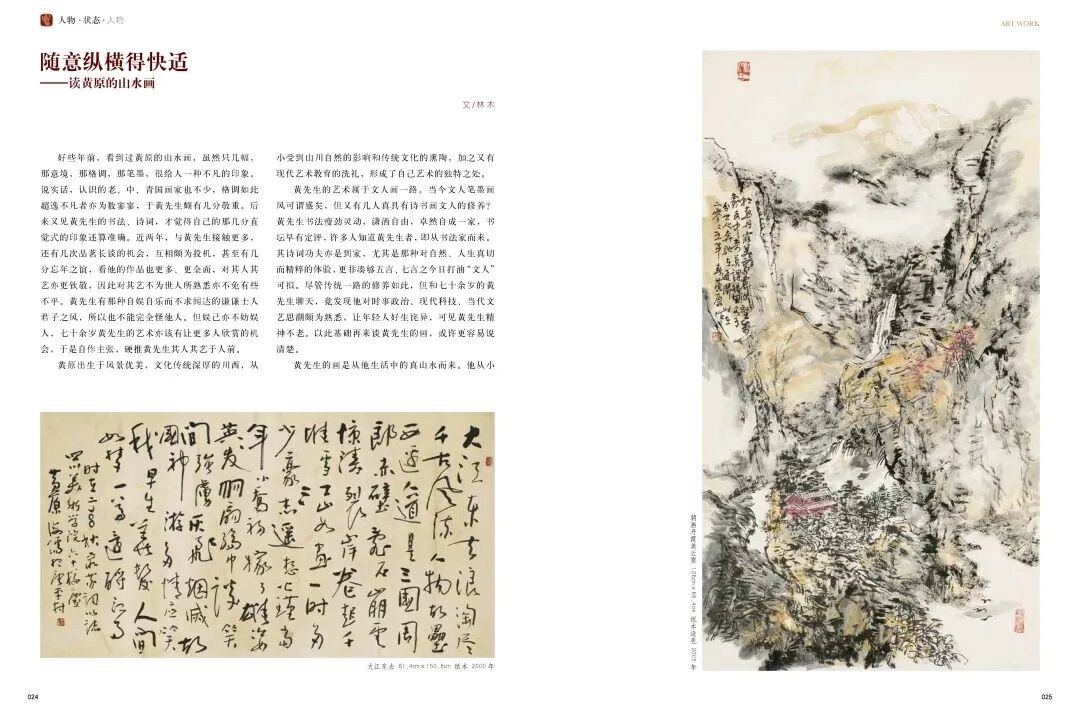 人物·状态·人物
ART WORK
随意纵横得快适
——读黄原的山水画
文/林木
好些年前,看到过黄原的山水画,虽然只几幅,
那意境,那格调,那笔墨,很给人一种不凡的印象。
说实话,认识的老、中、青国画家也不少,格调如此
超逸不凡者亦为数寥寥,于黄先生颇有几分敬重。后
来又见黄先生的书法、诗词,才觉得自己的那几分直
觉式的印象还算准确。近两年,与黄先生接触更多,
还有几次品茗长谈的机会,互相颇为投机,甚至有几
分忘年之谊,看他的作品也更多、更全面,对其人其
艺亦更钦敬,因此对其艺不为世人所熟悉亦不免有些
不平。黄先生有那种自娱自乐而不求闻达的谦谦士人
君子之风,所以也不能完全怪他人。但娱己亦不妨娱
人,七十余岁黄先生的艺术亦该有让更多人欣赏的机
会,于是自作主张,硬推黄先生其人其艺于人前。
黄原出生于风景优美,文化传统深厚的川西,从
小受到山川自然的影响和传统文化的熏陶,加之又有
现代艺术教育的洗礼,形成了自己艺术的独特之处。
黄先生的艺术属于文人画一路。当今文人笔墨画
风可谓盛矣,但又有几人真具有诗书画文人的修养?
黄先生书法瘦劲灵动,潇洒自由,卓然自成一家,书
坛早有定评,许多人知道黄先生者,即从书法家而来。
其诗词功夫亦是到家,尤其是那种对自然、人生真切
而精粹的体验,更非凑够五言、七言之今日打油“文人”
可拟。尽管传统一路的修养如此,但和七十余岁的黄
先生聊天,竟发现他对时事政治、现代科技、当代文
艺思潮颇为熟悉,让年轻人好生诧异,可见黄先生精
神不老。以此基础再来谈黄先生的画,或许更容易说
清楚。
黄先生的画是从他生活中的真山水而来。他从小
大江东去浪淘尽
千古风流人物故垒
西边人道是三國周
郎赤壁乱石崩云
惊涛裂岸卷起千
堆雪江山如画一时多
少豪杰遥想公瑾当
年小乔初嫁了雄姿
英发羽扇纶巾谈笑
间强虏灰飞烟灭故
國神游多情应笑
我早生华发人间
如梦一尊还酹江月
四川美术学院六十校庆
大江东去 61.4cm×150.8cm 纸本 2000年
朝画丹霞美云霓 128cm×66.4cm 纸本设色 2003年
024
025